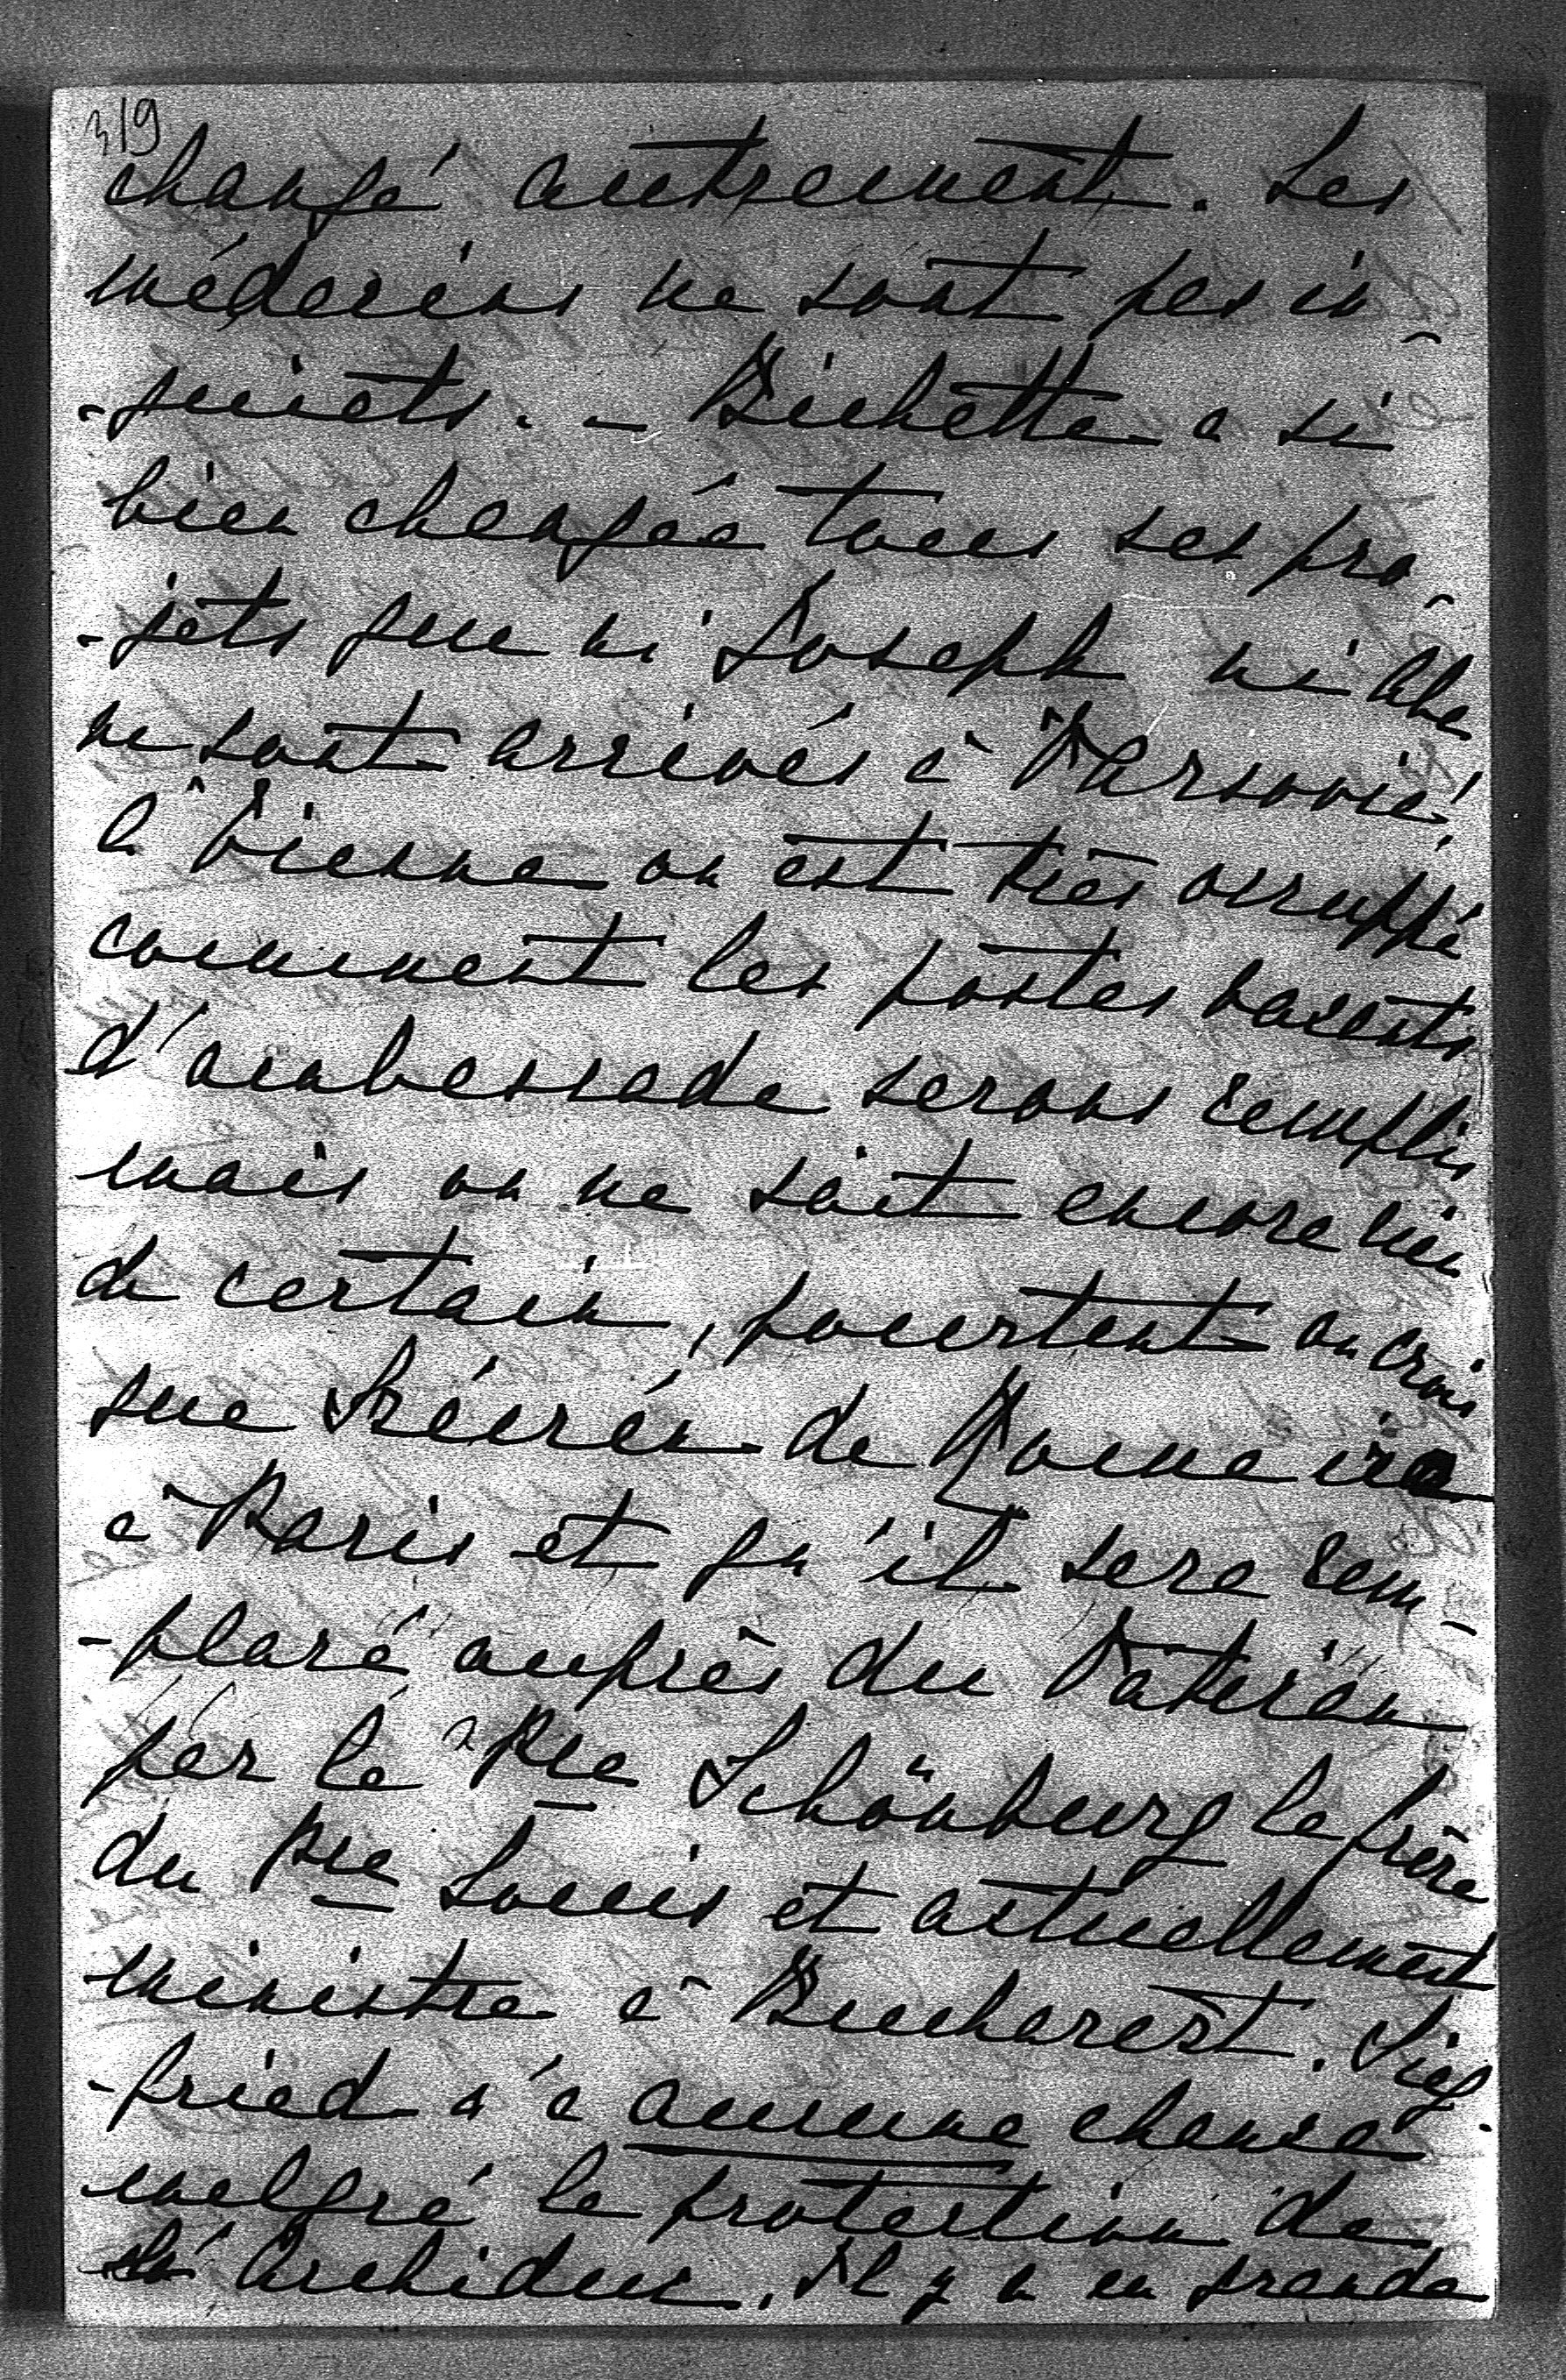 319
changé autrement. Les
médecins ne sont pas in-
-quiets. - Bichette a si
bien changée tous ses pro-
-jets que ni Joseph ni Abe
ne sont arrivés à Varsovie!
à Vienne on est très occuppé
comment les postes vacants
d'ambassade serons remplis
mais on ne sait encore rien
de certain, pourtant on crois
que Szécsén de Rome ira
à Paris et qu'il sera rem-
-placé auprès du Vatican
par le Pce Schönburg le frère
du Pce Louis et actuellement
ministre à Bucharest. Sieg-
-fried n'a aucune chance
malgré la protection de
l'Archiduc. Il y a eu grande